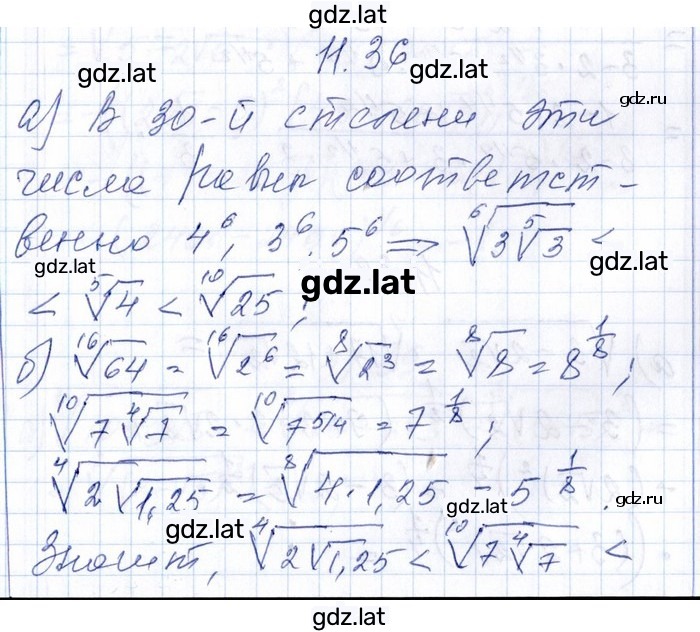 gdz.lat
11.36
gdz.lat
gdz.lat
а) В 30-й степени эти
gdz.ru
числа равны соответст-
венно 4⁶, 3⁶. 5⁶ ⇒ ⁶√(3 ⁵√3) <
gdz.lat
gdz.lat
< ⁵√4 < ¹⁰√25 ;
gdz.lat
б) ¹⁶√64 = ¹⁶√2⁶ = ⁸√2³ = ⁸√8 = 8^(1/8) ;
¹⁰√(7 ⁴√7) = ¹⁰√(7^(5/4)) = 7^(1/8) ;
⁴√(2 √1,25) = ⁸√(4 · 1,25) = 5^(1/8) .
gdz.lat
gdz.ru
gdz.lat
Значит, ⁴√(2√1,25) < ¹⁰√(7 ⁴√7) <
gdz.lat